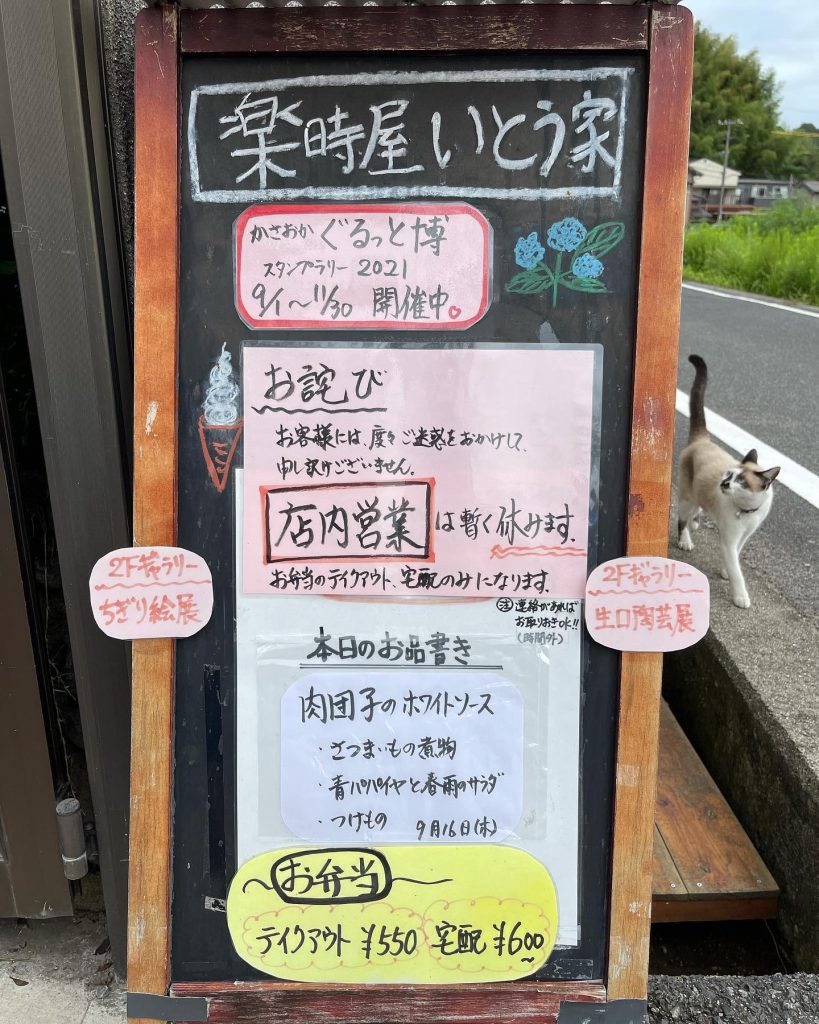 楽時屋いとう家
かさおか ぐるっと博
スタンプラリー 2021
9/1〜11/30 開催中。
お詫び
お客様には、度々ご迷惑をおかけして、
申し訳けございません。
店内営業は暫く休みます。
お弁当のテイクアウト、宅配のみになります。
注 連絡があれば
お取りおきOK!!
(時間外)
2Fギャラリー
ちぎり絵展
2Fギャラリー
生口陶芸展
本日のお品書き
肉団子のホワイトソース
・さつまいもの煮物
・青パパイヤと春雨のサラダ
・つけもの 9月16日(木)
お弁当
テイクアウト ¥550 宅配 ¥600